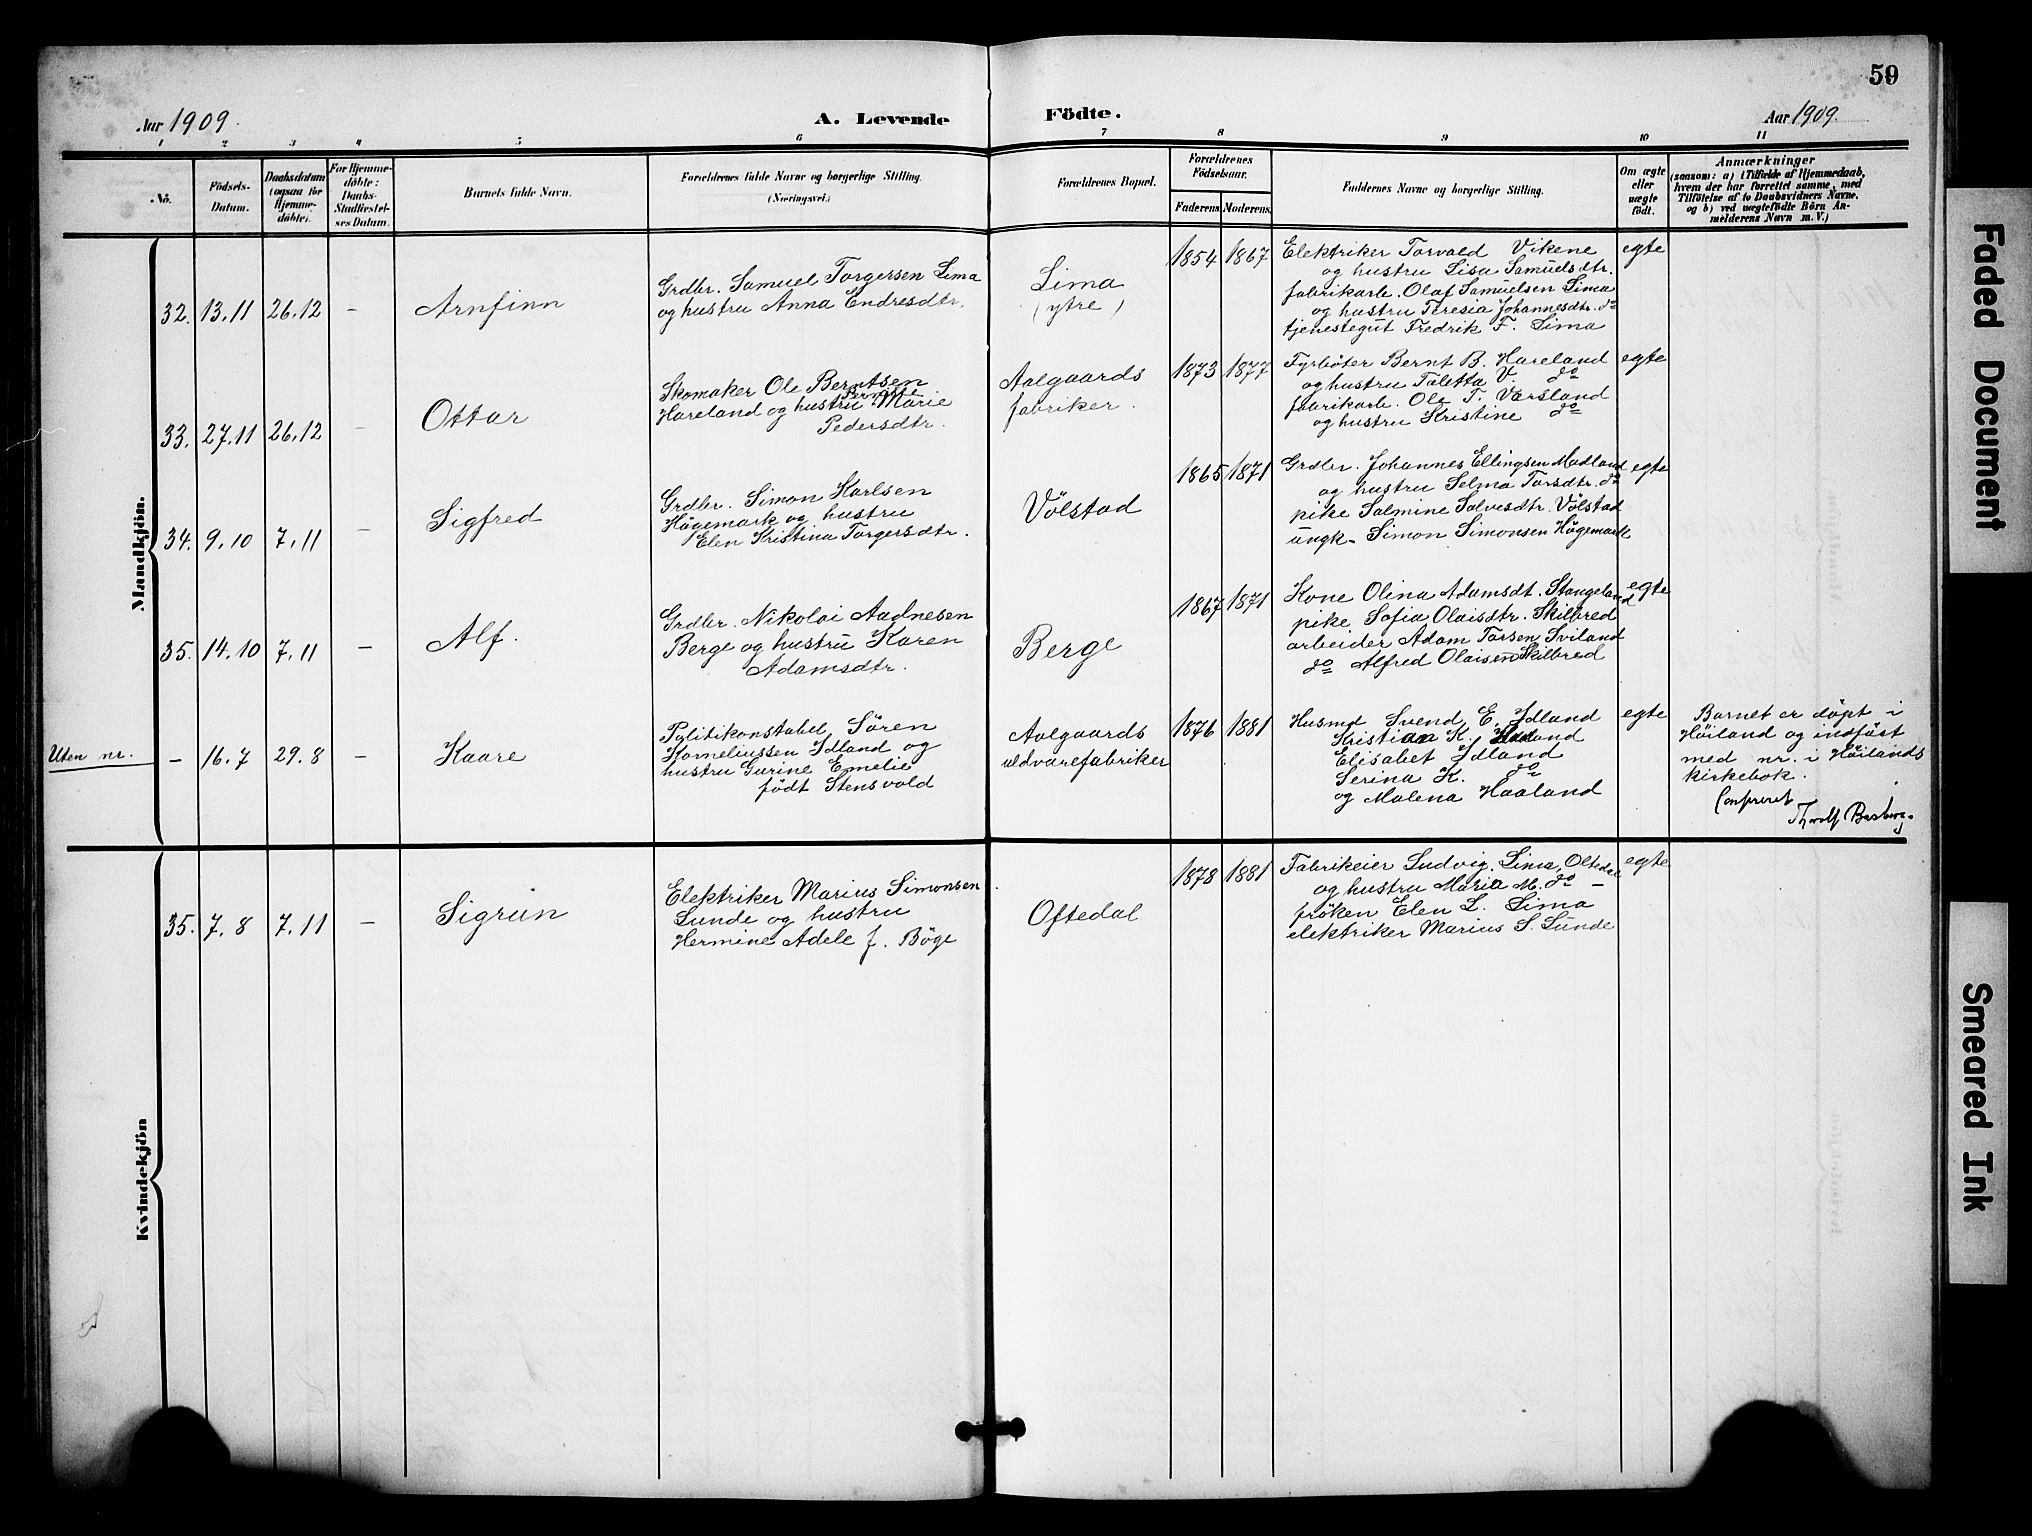 59
Aar 1909.
A. Levende
Födte.
Aar 1909.
1 2 3 4 5 6 7 8 9 10 11
No.
Födsels-
Datum.
Daabsdatum
(ogsaa for
Hjemme-
döbte).
For Hjemme-
döbte:
Daabs-
Stadfæstel-
ses Datum.
Barnets fulde Navn.
Forældrenes fulde Navne og borgerlige Stilling.
(Næringsvei.)
Forældrenes Bopæl.
Forældrenes
Födselsaar.
Faderens
Moderens.
Faddernes Navne og borgerlige Stilling.
Om ægte
eller
uægte
födt.
Anmærkninger
(saasom: a) i Tilfælde af Hjemmedaab,
hvem der har forrettet samme, med
Tilföielse af to Daabsvidners Navne,
og b) ved uægtefödte Börn An-
melderens Navn m. V.)
Mandkjön.
32. 13.11 26.12 –
Arnfinn
Grdbr. Samuel Torgersen Lima
og hustru Anna Endresdtr.
Lima
(ytre)
1854 1867
Elektriker Torvald Vikene
og hustru Lisa Samuelsdtr.
fabrikarb. Olaf Samuelsen Lima
og hustru Teresia Johannesdtr. do
tjenestegut Fredrik F. Lima
egte
33. 27.11 26.12 –
Ottar
Skomaker Ole Berntsen
Hareland og hustru Marie
Pedersdtr.
Aalgaards
fabriker.
1873 1877
Fyrböter Bernt B. Hareland
og hustru Taletta V. do
fabrikarb. Ole T. Varsland
og hustru Kristine do
egte
34. 9.10 7.11 –
Sigfred
Grdbr. Simon Karlsen
Högemark og hustru
Elen Kristina Torgersdtr.
Völstad
1865 1871
Grdbr. Johannes Ellingsen Madland
og hustru Selma Torsdtr. do
pike Salmine Salvesdtr. Völstad
ungk. Simon Simonsen Högemark
egte
35. 14.10 7.11 –
Alf.
Grdbr. Nikolai Aadnesen
Berge og hustru Karen
Adamsdtr.
Berge
1867 1871
Kone Olina Adamsdt. Stangeland
pike Sofia Olaisdtr. Skilbred
arbeider Adam Torsen Sviland
do Alfred Olaisen Skilbred
egte
Uten nr.
– 16.7 29.8 –
Kaare
Politikonstabel Sören
Korneliussen Idland og
hustru Gurine Emelie
födt Stensvold
Aalgaards
uldvarefabriker
1876 1881
Husmd Svend E. Idland
Kristian K.
Elisabet Idland
Serina K. do
og Malena Haaland
egte
Barnet er döpt i
Höiland og indfört
med nr. i Höilands
kirkebok.
Confereret
Kvindekjön
35. 7.8 7.11 –
Sigrun
Elektriker Marius Simonsen
Lunde og hustru
Hermine Adele f. Böge
Oftedal
1878 1881
Fabrikeier Ludvig Lima, Oltedal
og hustru Maria M. do –
fröken Elen L. Lima
elektriker Marius S. Lunde
egte
Faded Document
Smeared Ink